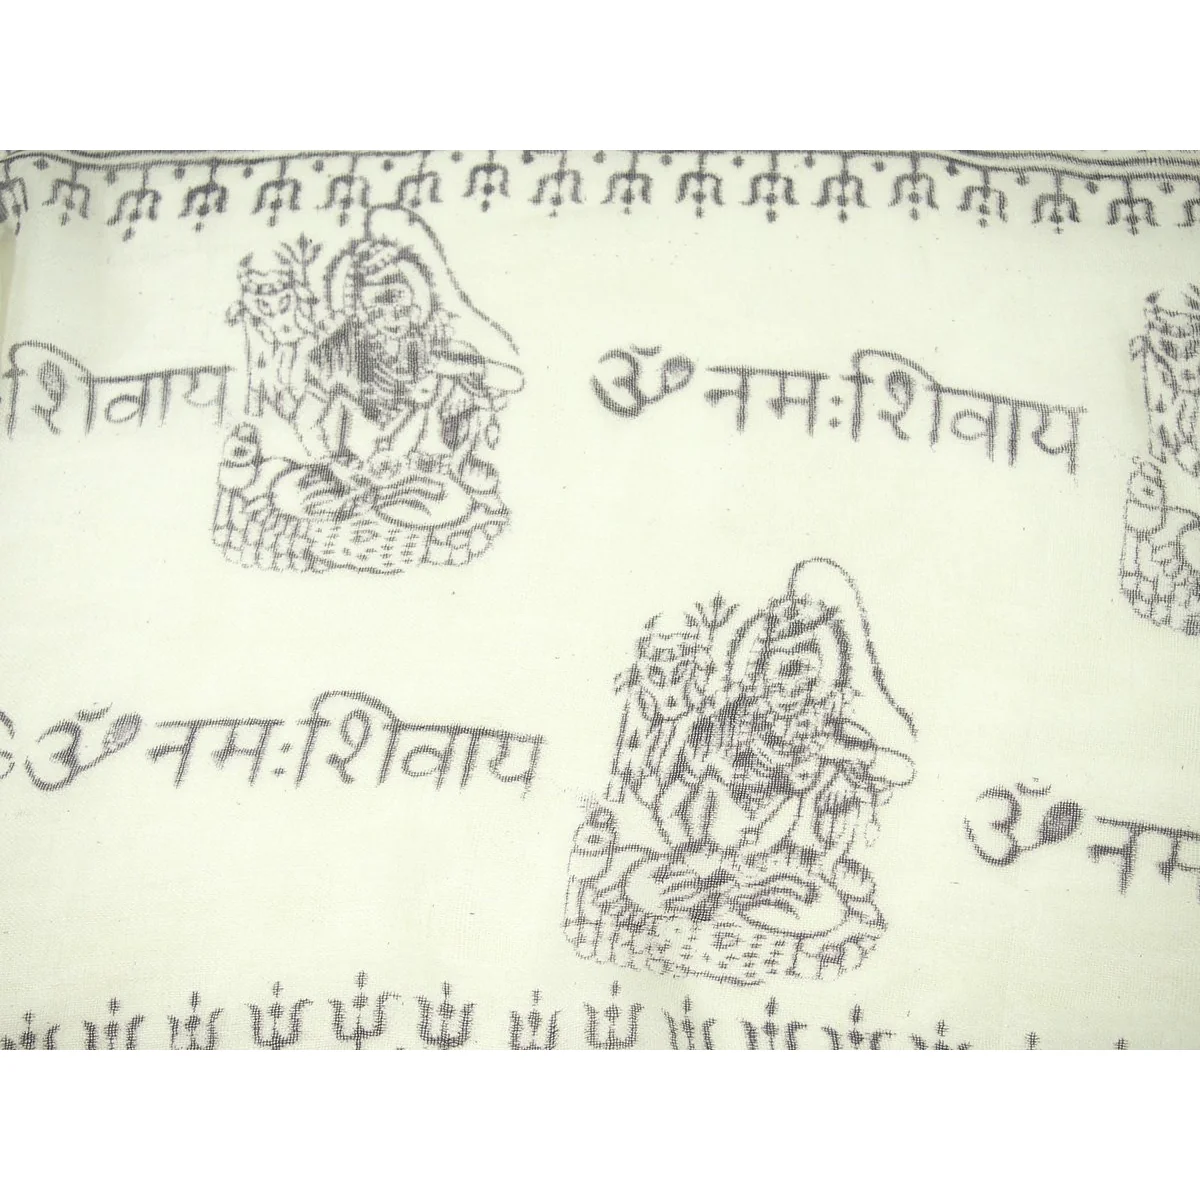 शिवाय
ॐ नमःशिवाय
ॐ नमःशिवाय
ॐ नम